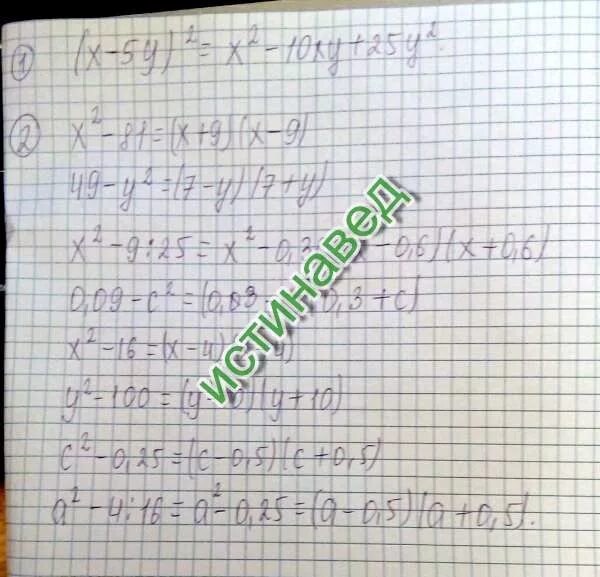 ① (x-5y)² = x² - 10xy + 25y².
② x² - 81 = (x+9)(x-9)
49 - y² = (7-y)(7+y)
x² - 9:25 = x² - 0,3 - 0,6)(x + 0,6)
0,09 - c² = (0,03 0,3 + c)
x² - 16 = (x-4)
y² - 100 = (y 0)(y+10)
c² - 0,25 = (c - 0,5)(c + 0,5)
a² - 4:16 = a² - 0,25 = (a - 0,5)(a + 0,5).
истинавед